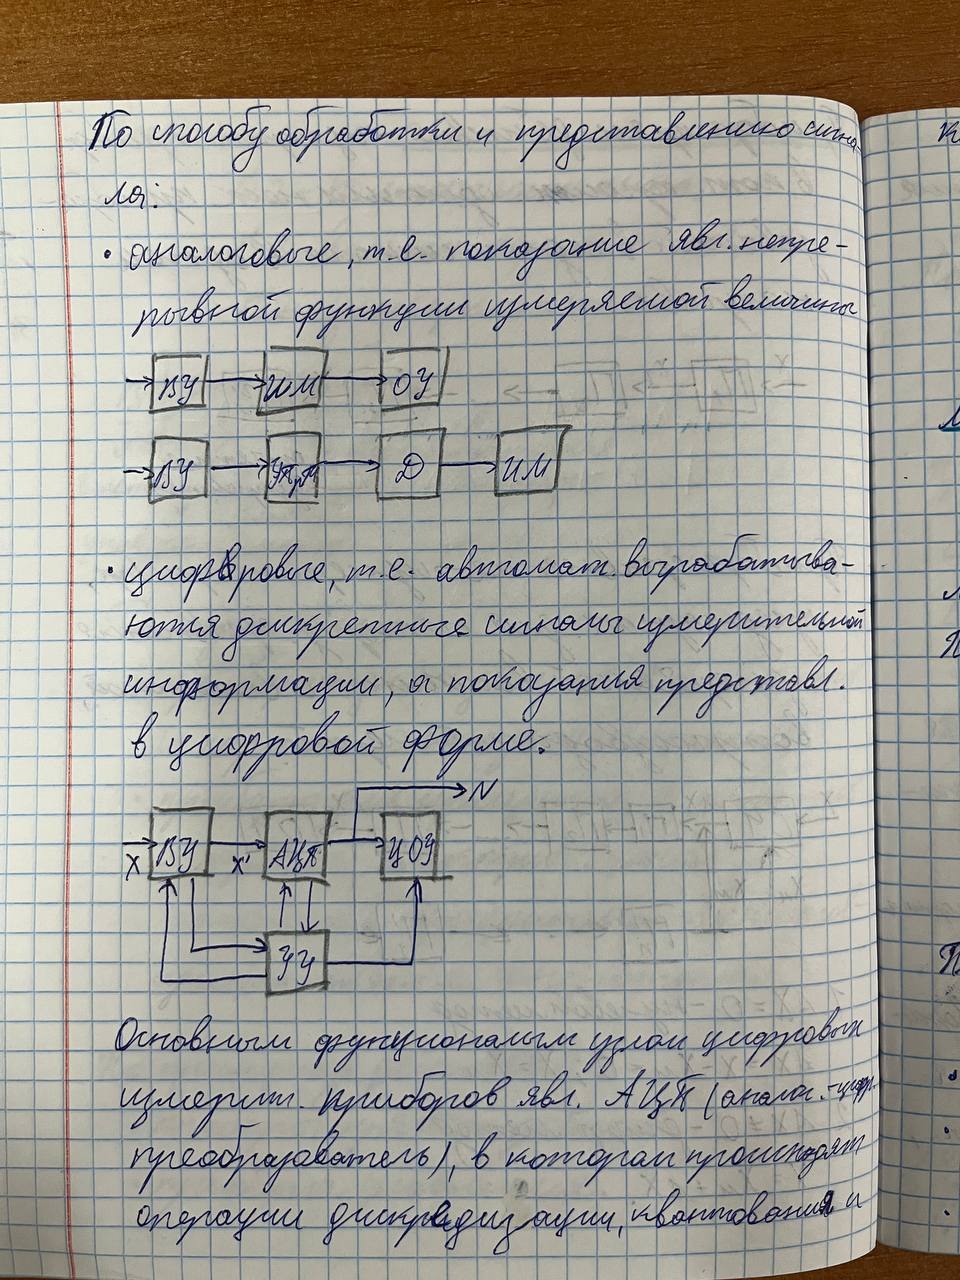 По способу обработки и представлению сигна-
ла:
• аналоговые, т.е. показание явл. непре-
рывной функции измеряемой величины
ВУ ИМ ОУ
ВУ Д ИМ
• цифровые, т.е. автомат. вырабатыва-
ются дискретные сигналы измерительной
информации, а показания представл.
в цифровой форме.
N
X ВУ X' АЦП ЦОУ
УУ
Основным функционалым узлом цифровых
измерит. приборов явл. АЦП (аналог.-цифр.
преобразователь), в котором происходят
операции дискредизации, квантования и